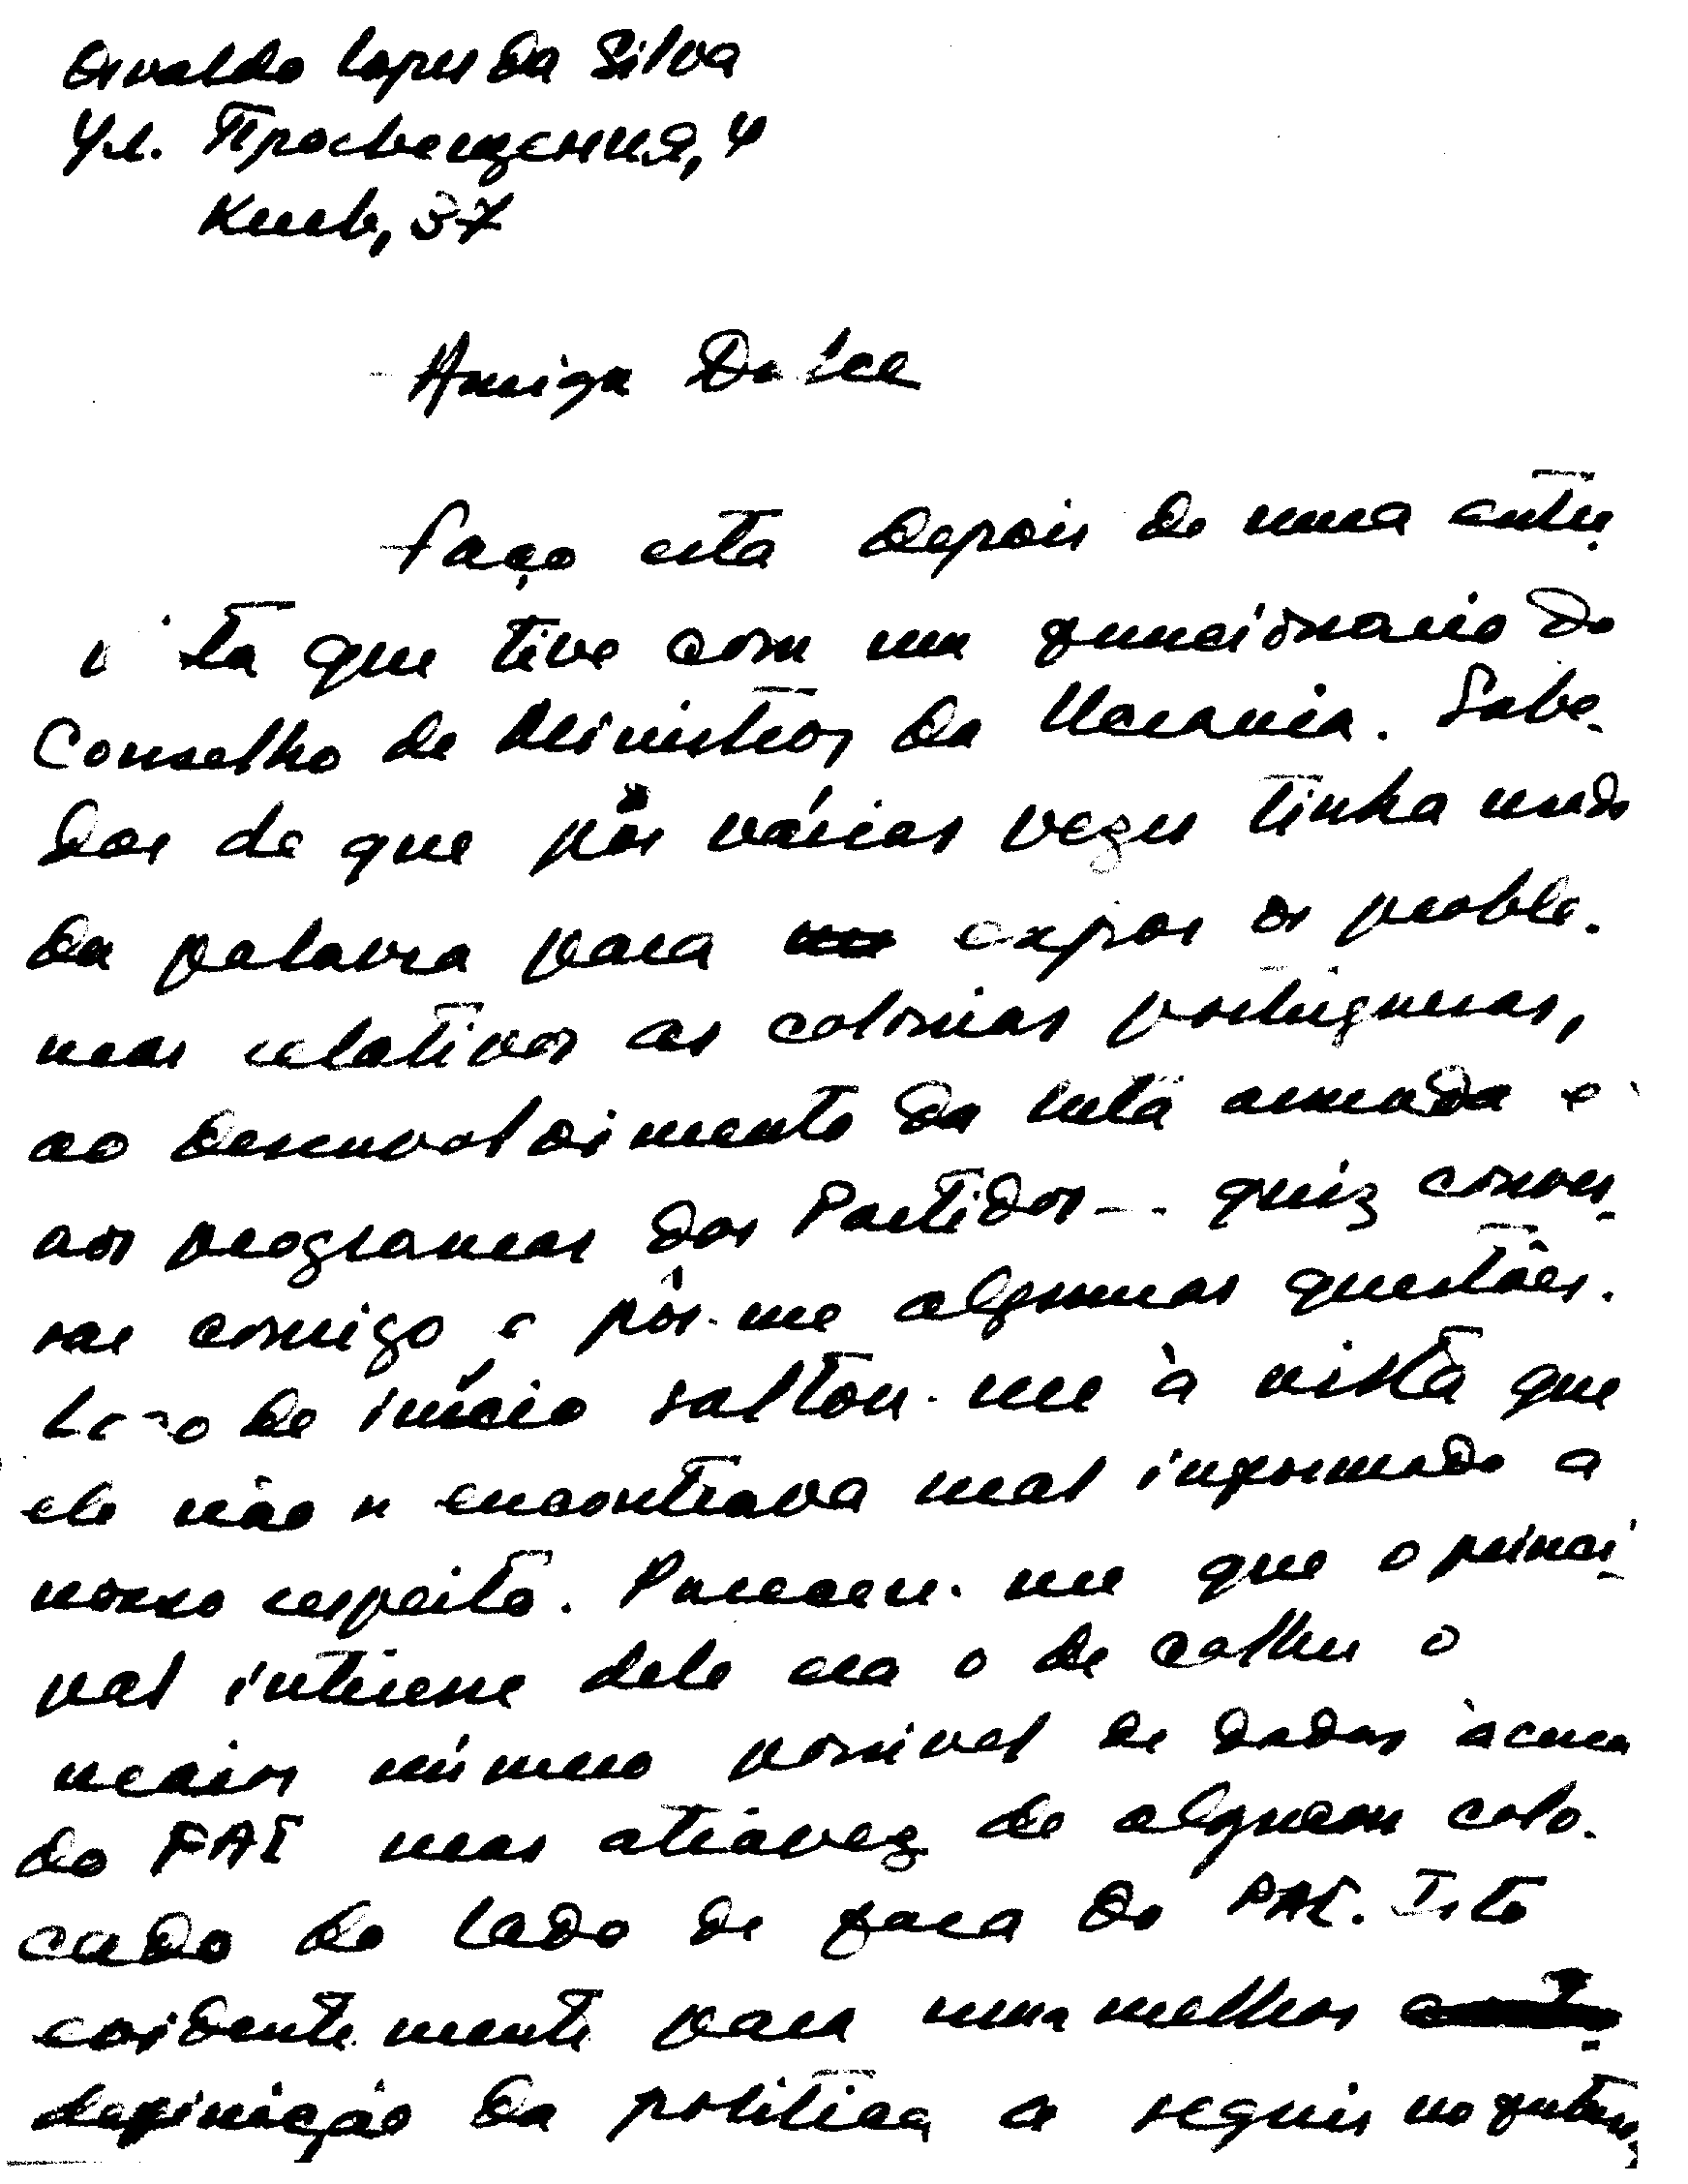 Osvaldo Lopes da Silva
Ул. Просвещения, 4
Киев, 37
Amiga Dulce
Faço esta depois de uma entre-
vista que tive com um funcionario do
Conselho de Ministros da Ucrania. Sabe-
dor de que por várias vezes tinha usado
da palavra para expor os proble-
mas relativos as colonias portuguesas,
ao desenvolvimento da luta armada e
aos programas dos Partidos... quiz conver-
sar comigo e pôr-me algumas questões.
Logo de início saltou-me à vista que
ele não se encontrava mal informado a
nosso respeito. Pareceu-me que o princi-
pal interesse dele era o de colher o
maior número possivel de dados àcerca
do PAI mas atravez de alguem colo-
cado do lado de fora do PAI. Isto
evidentemente para uma melhor
definição da politica a seguir no futuro,